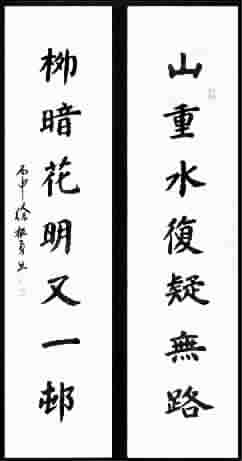 山重水復疑無路
柳暗花明又一邨
丙申徐振勇书